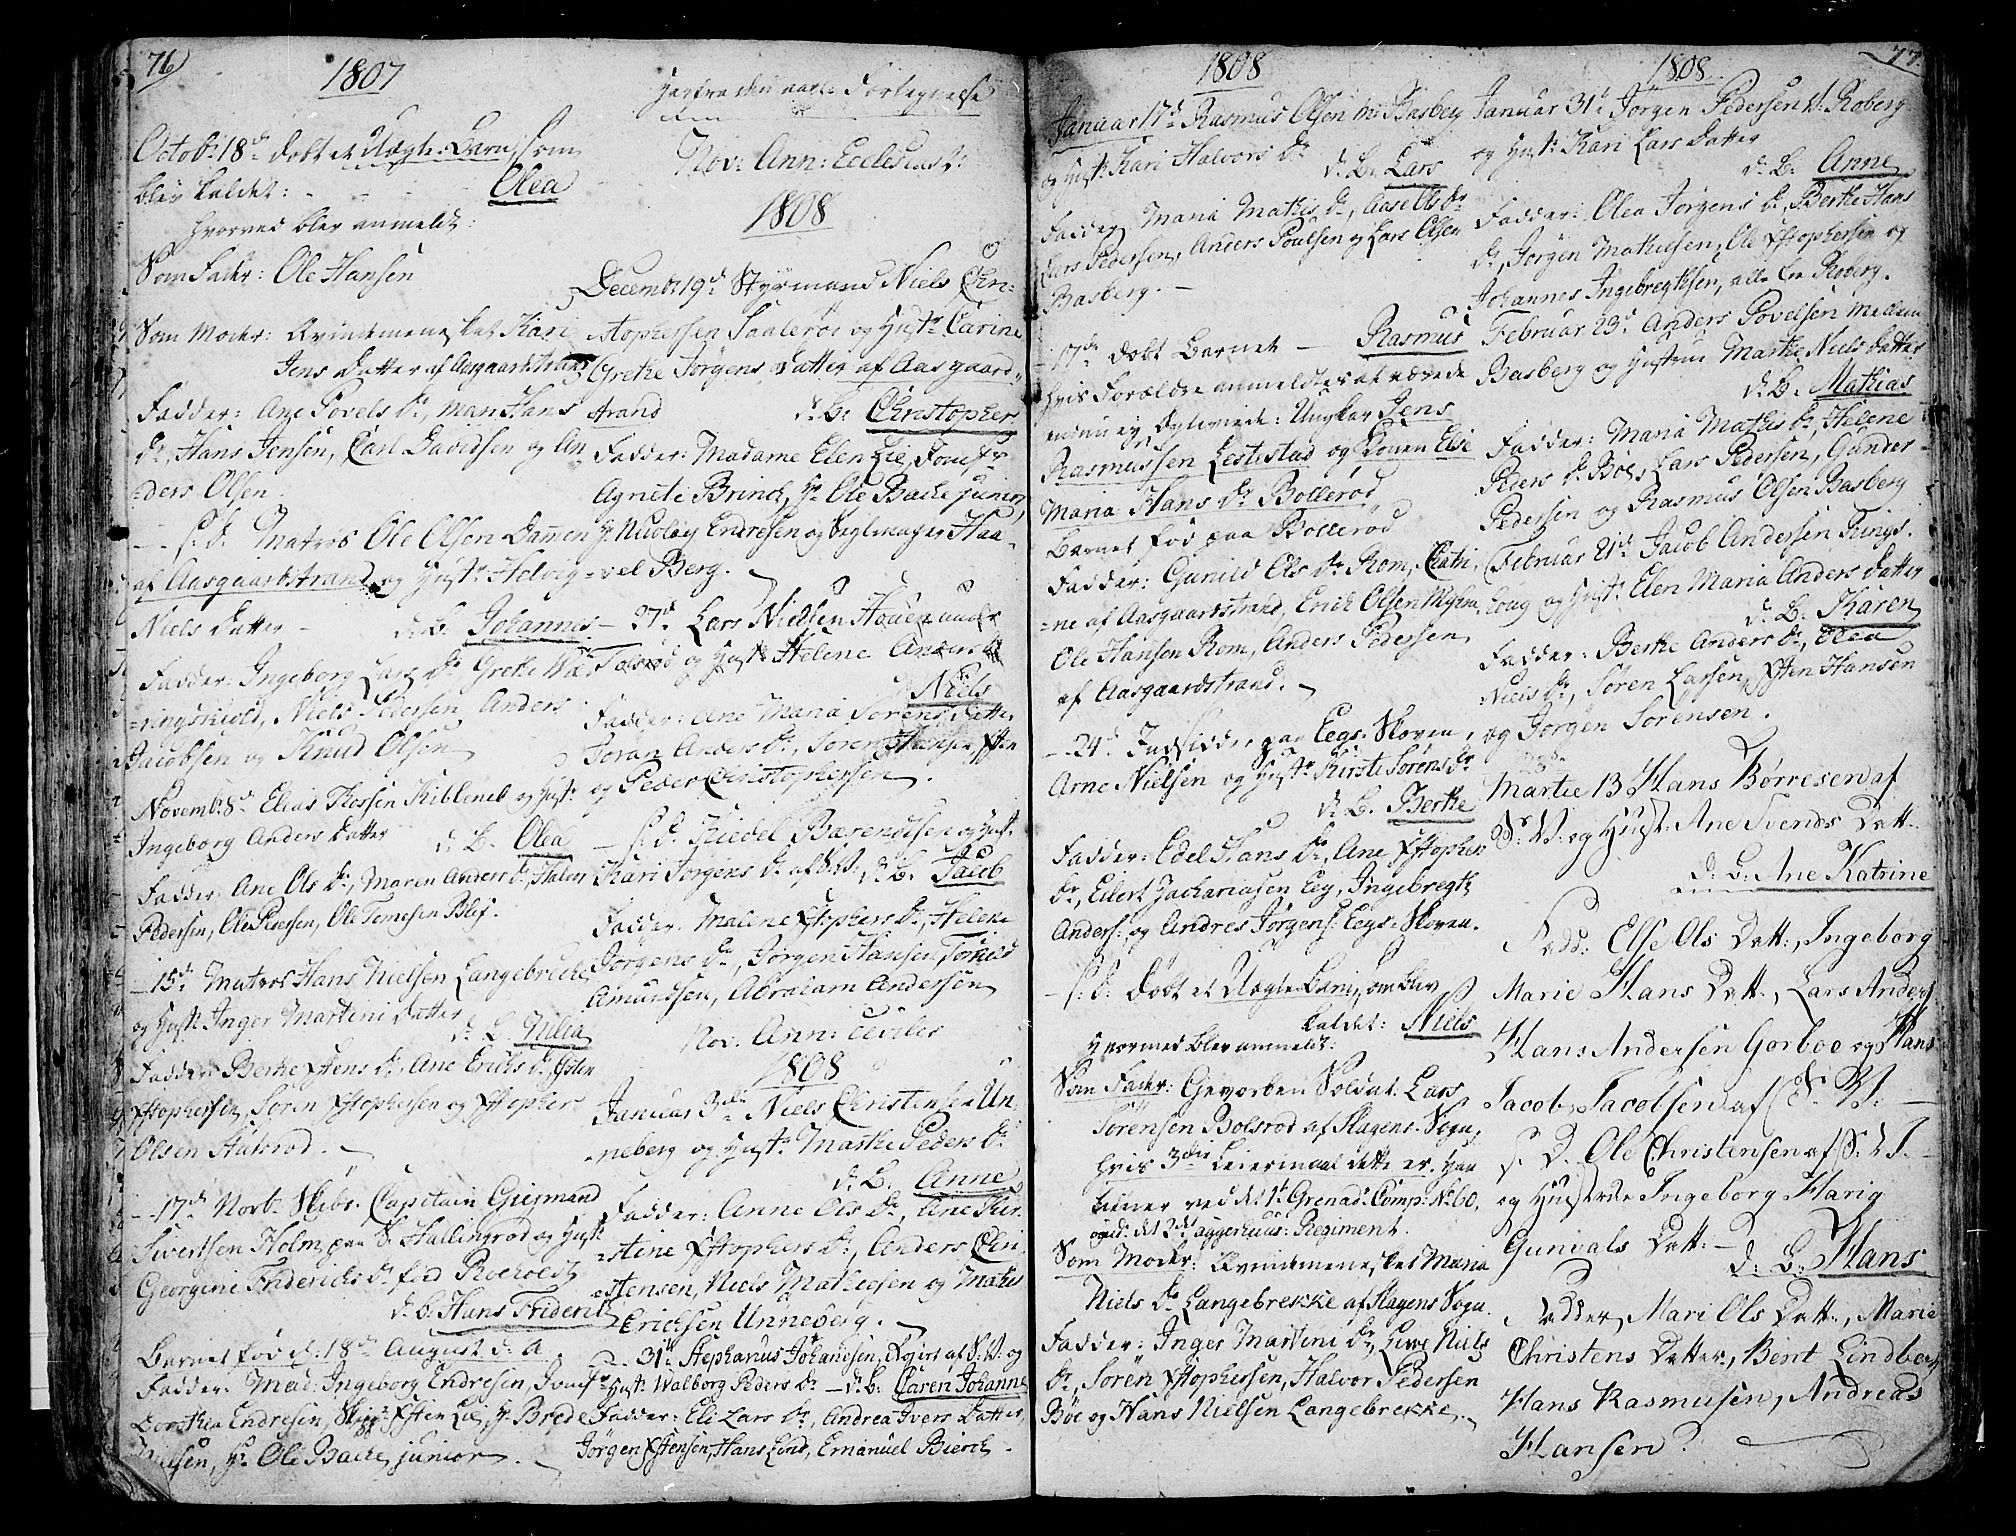 76
1807
Octobr 18de døbt et Uægte-Barn, som
blev kaldet: Olea
hvorved blev anmeldt:
Som Fader: Ole Hansen
Som Moder: Qvindemennesket Kari
Jens Datter af Aasgaardstrand
Fadder: Ane Povels Dr, Mari Hans
Dr, Hans Jensen, Carl Davidsen og An
=ders Olsen
— s: d. Matros Ole Olsen Dammen
af Aasgaardstrand og Hustr Helvig
Niels Datter — d: B. Johannes
Fadder: Ingeborg Lars Dr Grethe Wæ
=ringskiold, Niels Pedersen Anders
Jacobsen og Knud Olsen
Novembr 8de Elias Thersen Kiblineb og Hustr
Ingeborg Anders Datter d: B. Olea
Fadder: Ane Ols Dr, Maren Anders Dr, Halvor
Pedersen, Ole Pedersen, Ole Temesen Blij.
— 15de Matros Hans Nielsen Langebrekke
og Hustr Inger Martini Datter
d: B. Julea
Fadder: Berthe Xstens Dr, Ane Erichs Dr Østen
Xstophersen, Søren Xstophersen og Xstopher
Olsen Halsrød.
— 17de Novbr Skibs-Capitain Guемand
Sivertsen Holm paa S: Hallingrød og Hustr
Georgine Friderichs Dr fød Roeholdt
d: B: Hans Friderik
Barnet fød d: 18de August d: A.
Fadder: Mad: Ingeborg Endresen, Jomfr
Dorothea Endresen, Skippr Xsten Lie, Hr Brede
Nielsen, Hr Ole Backe junior.
Herfra den nye Fortegnelse
Nov: Ann: Ecclesiast:
1808
Decembr 19de Styrmand Niels Chri=
stophersen Saalerøe og Hustr Carine
Grethe Jørgens Datter af Aasgaard=
strand d: B: Christopher
Fadder: Madame Elen Lie, Jomfr
Agnete Brinch, Hr Ole Backe junior,
Hr Nicolay Endresen og Seglmager Haa=
=vel Berg.
— 27de Lars Nielsen Houen under
Tolsrød og Hustr Helene Anders Dr
Niels
Fadder: Ane Maria Sørens Datter
Joran Anders Dr, Søren Hansen, Xsten
og Peder Christophersen.
— s: d. Riedel Barendtsen og Hustr
Kari Jørgens Dr af S: V. d: B. Jacob
Fadder: Malene Xstophers Dr, Helene
Jørgens Dr, Jørgen Hansen, Torkild
Amundsen, Abraham Andersen
Nov. Ann: civiles
1808
Januar 3die Niels Christensen Un=
=neberg og Hustr Marthe Peders Dr
d: B. Anne
Fadder: Anne Ols Dr, Ane Kir=
=stine Xstophers Dr, Anders Chri=
=stensen, Niels Mathiesen og Mathis
Ericksen Unneberg.
31te Stephanus Johannsen, af S: V: og
Hustr Walborg Peders Dr — d: B: Caren Johanne
Fadder: Eli Lars Dr, Andrea Ivers Datter,
Jørgen Xstensen, Hans Lind, Emanuel Bierch
1808
Januar 17de Rasmus Olsen m: Basberg
og Hustr Kari Halvors Dr
d: B: Lars
Fadder: Maria Mathis Dr, Aase Ols Dr
Lars Pedersen, Anders Poulsen og Lars Olsen
Basberg. —
— 17de døbt Barnet — Rasmus
hvis Forældre anmeldtes at værede
endnu ej Egteviede: Ungkar Jens
Rasmussen Lestestad og Konen Else
Maria Hans Dr Bollerød
Barnet fød paa Bollerød
Fadder: Gunild Ols Dr Rom, Cathri=
=ne af Aasgaardstrand, Erich Olsen
Ole Hansen Rom, Anders Pedersen
af Aasgaardstrand.
— 24de Indsidder paa Eegs-Skoven,
Arne Nielsen og Hustr Kirsti Sørens Dr
d: B. Berthe
Fadder: Edel Hans Dr, Ane Xstophers
Dr, Eilert Zachariasen Eeg, Ingebregt
Anders: og Andres Jørgens: Eegs-Skoven.
— s: d: Døbt et Uægte Barn, som blev
kaldet: Niels
Hvormed blev anmeldt:
Som Fader: Gevorben Soldat Lars
Sørensen Bolsrød af Slagens-Sogn,
hvis 3die Leiermaal dette er. Han
tiener ved det 1ste Grenad: Comp: No 60,
og det 2det aggerhuus: Regiment.
Som Moder: Qvindemennesket Maria
Niels Dr Langebrekke af Slagens Sogn.
Fadder: Inger Martini Dr, Live Niels
Dr, Søren Xstophersen, Halvor Pedersen
Bøe og Hans Nielsen Langebrekke.
77
1808
Januar 31te Jørgen Pedersen N: Roberg
og Hustr Kari Lars Datter
d: B: Anne
Fadder: Olea Jørgens Dr, Berthe Hans
Dr, Jørgen Mathiesen, Ole Xstophersen og
Johannes Ingebregthsen, alle fra Roberg.
Februar 23de Anders Povelsen Mellem
Basberg og Hustrue Marthe Niels Datter
d: B. Mathias
Fadder: Maria Mathis Dr, Helene
Peders Dr Bøe, Lars Pedersen, Gunder
Pedersen og Rasmus Olsen Basberg
Februar 21de Jacob Andersen Tings=
Houg og Hustr Elen Maria Anders Datter
d: B. Karen
Fadder: Berthe Anders Dr, Olea
Niels Dr, Søren Larsen, Xsten Hansen
og Jørgen Sørensen.
Martii 13 Hans Børresen af
S: V: og Hustr: Ane Svends Datt:
d: B: Ane Katrine
Fadd: Else Ols Datt:, Ingeborg
Marie Hans Datt:, Lars Anders:
Hans Andersen Gorboe og Hans
Jacob Jacobsen af S: V: —
s. D. Ole Christensen af S: V. —
og Hustrue Ingeborg Marig
Gunvals Datt: —
d: B: Hans
Fadder, Mari Ols Datt:, Marie
Christens Datter, Bent Lindberg
Hans Rasmussen, Andreas
Hansen.